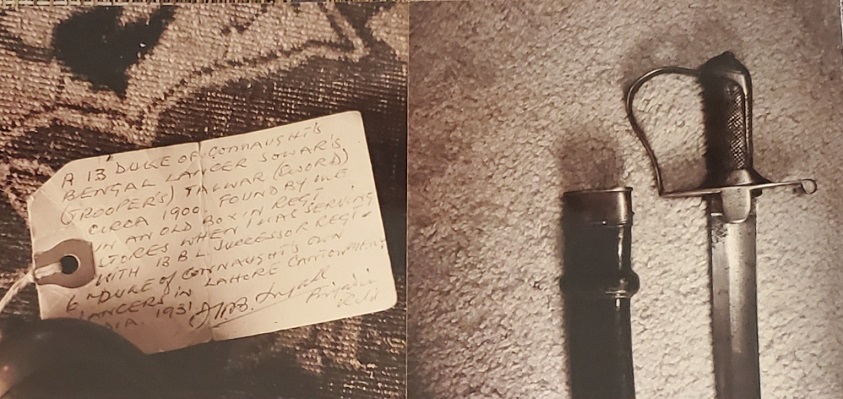 A 13 DUKE OF CONNAUGHT'S
BENGAL LANCER SOWAR'S
(TROOPER'S) TALWAR (SWORD)
CIRCA 1900 FOUND BY ME
IN AN OLD BOX IN REGT
STORES WHEN I WAS SERVING
WITH 13 B L SUCCESSOR REGT-
6TH DUKE OF CONNAUGHT'S OWN
LANCERS IN LAHORE CANTONMENT
INDIA. 1931